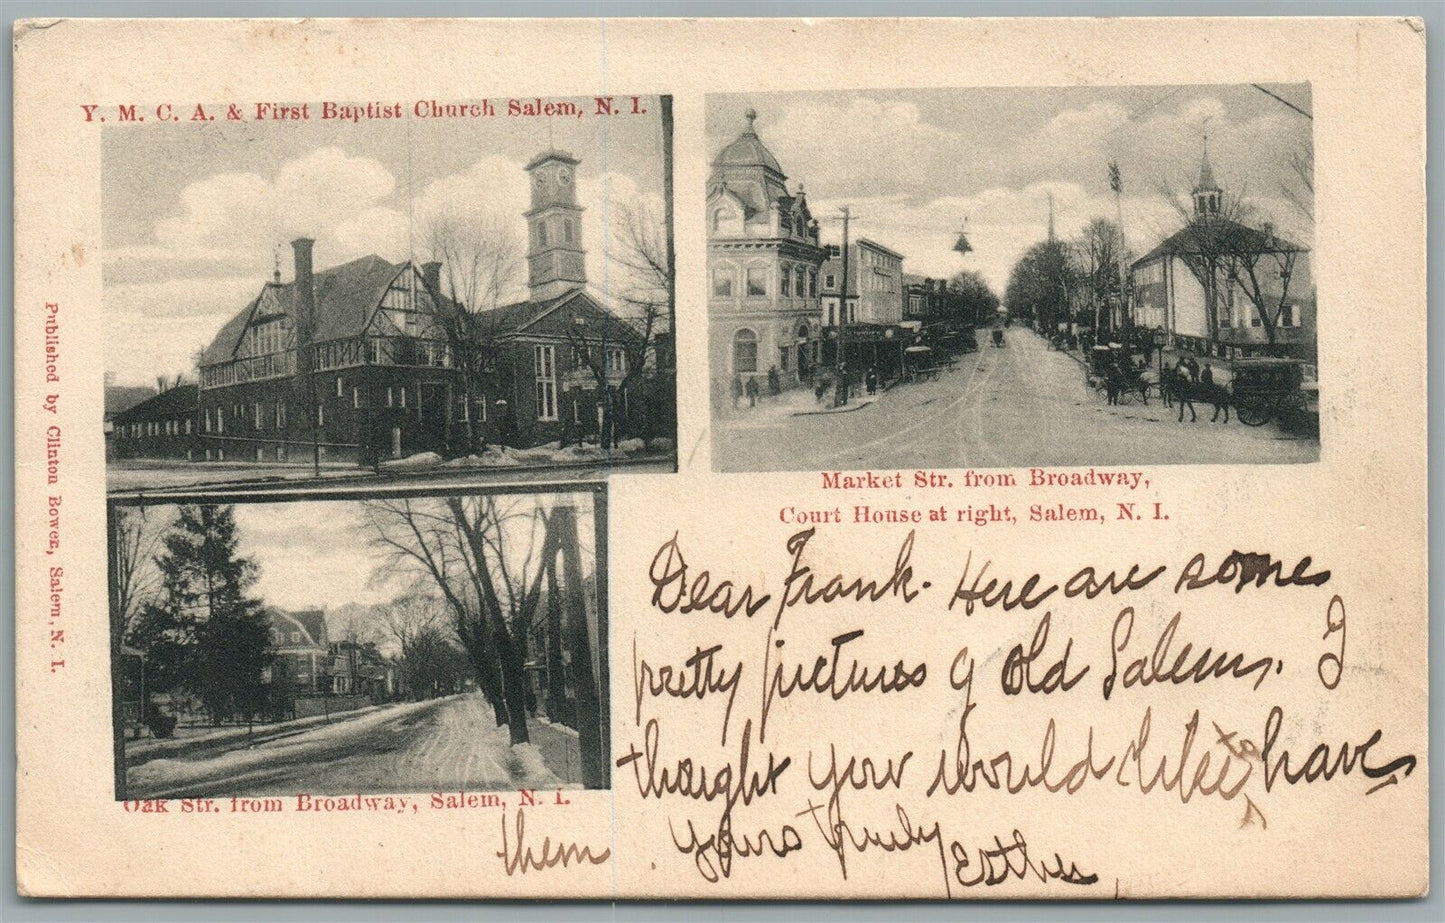 Y. M. C. A. & First Baptist Church Salem, N. I.
Market Str. from Broadway,
Court House at right, Salem, N. I.
Published by Clinton Bower, Salem, N. I.
Oak Str. from Broadway, Salem, N. I.
Dear Frank. Here are some
pretty pictures of Old Salem. I
thought you would like to have
them. Yours truly
Esther,